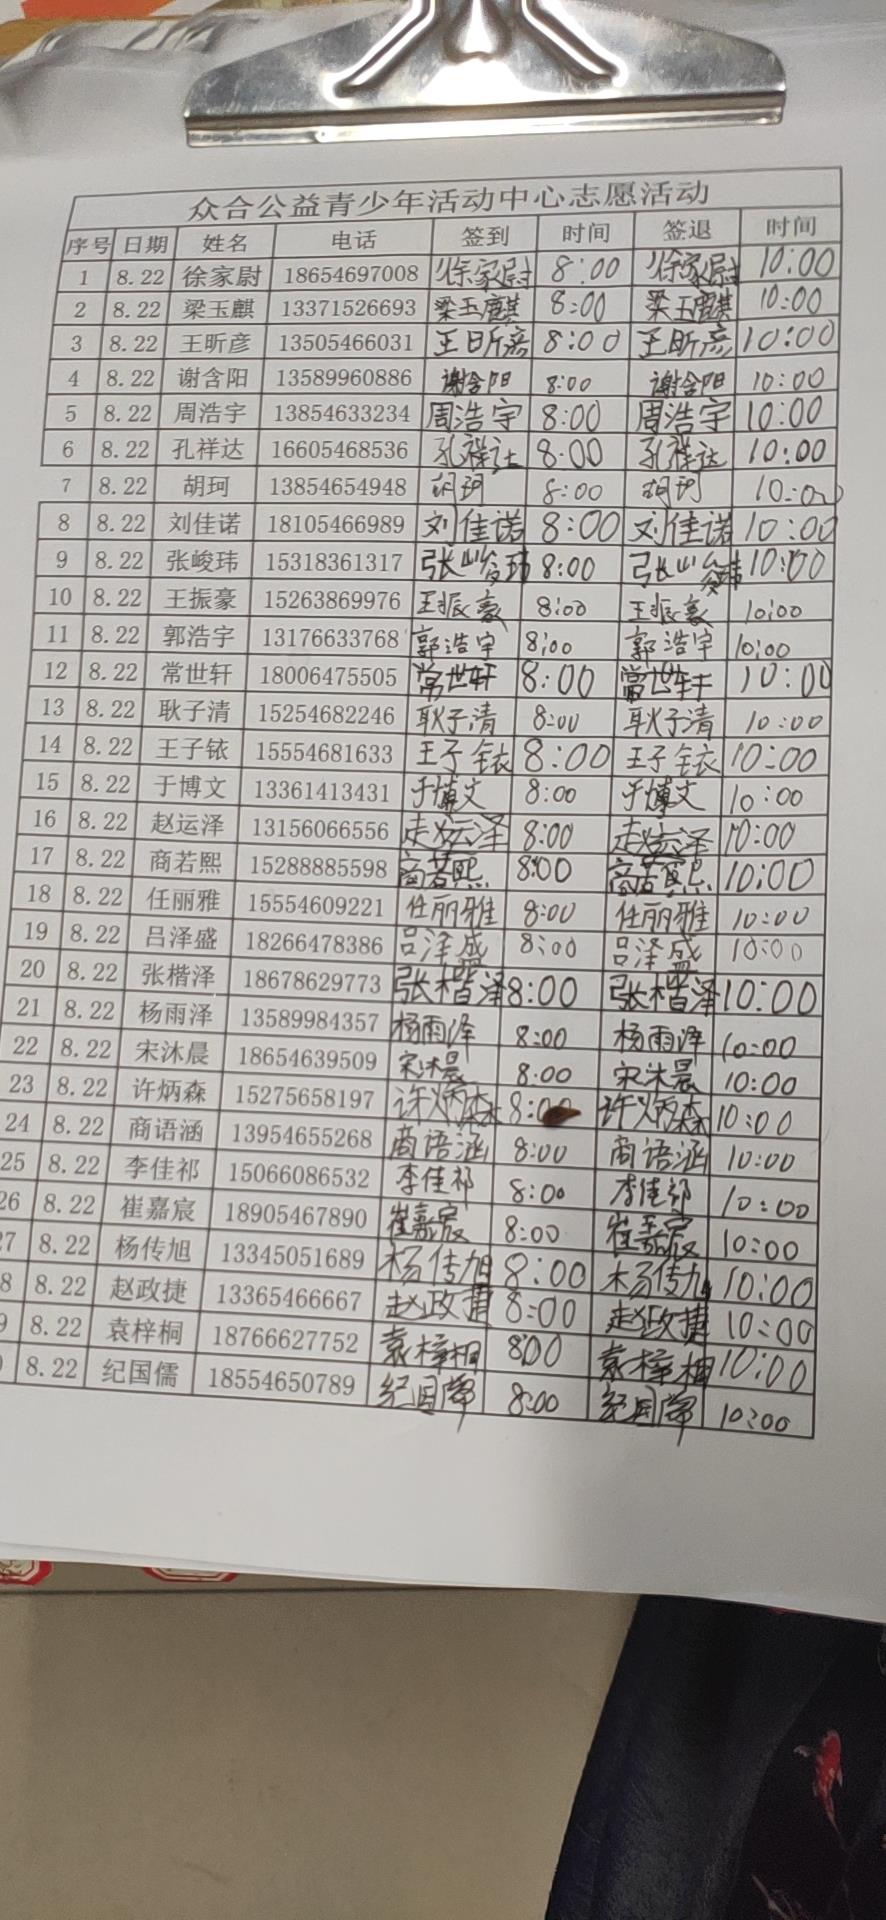 众合公益青少年活动中心志愿活动
序号 日期 姓名 电话 签到 时间 签退 时间
1 8.22 徐家尉 18654697008 徐家尉 8:00 徐家尉 10:00
2 8.22 梁玉麒 13371526693 梁玉麒 8:00 梁玉麒 10:00
3 8.22 王昕彦 13505466031 王昕彦 8:00 王昕彦 10:00
4 8.22 谢含阳 13589960886 谢含阳 8:00 谢含阳 10:00
5 8.22 周浩宇 13854633234 周浩宇 8:00 周浩宇 10:00
6 8.22 孔祥达 16605468536 孔祥达 8:00 孔祥达 10:00
7 8.22 胡珂 13854654948 胡珂 8:00 胡珂 10:00
8 8.22 刘佳诺 18105466989 刘佳诺 8:00 刘佳诺 10:00
9 8.22 张峻玮 15318361317 张峻玮 8:00 张峻玮 10:00
10 8.22 王振豪 15263869976 王振豪 8:00 王振豪 10:00
11 8.22 郭浩宇 13176633768 郭浩宇 8:00 郭浩宇 10:00
12 8.22 常世轩 18006475505 常世轩 8:00 常世轩 10:00
13 8.22 耿子清 15254682246 耿子清 8:00 耿子清 10:00
14 8.22 王子铱 15554681633 王子铱 8:00 王子铱 10:00
15 8.22 于博文 13361413431 于博文 8:00 于博文 10:00
16 8.22 赵运泽 13156066556 赵运泽 8:00 赵运泽 10:00
17 8.22 商若熙 15288885598 商若熙 8:00 商若熙 10:00
18 8.22 任丽雅 15554609221 任丽雅 8:00 任丽雅 10:00
19 8.22 吕泽盛 18266478386 吕泽盛 8:00 吕泽盛 10:00
20 8.22 张楷泽 18678629773 张楷泽 8:00 张楷泽 10:00
21 8.22 杨雨泽 13589984357 杨雨泽 8:00 杨雨泽 10:00
22 8.22 宋沐晨 18654639509 宋沐晨 8:00 宋沐晨 10:00
23 8.22 许炳森 15275658197 许炳森 8:00 许炳森 10:00
24 8.22 商语涵 13954655268 商语涵 8:00 商语涵 10:00
25 8.22 李佳祁 15066086532 李佳祁 8:00 李佳祁 10:00
26 8.22 崔嘉宸 18905467890 崔嘉宸 8:00 崔嘉宸 10:00
7 8.22 杨传旭 13345051689 杨传旭 8:00 杨传旭 10:00
8 8.22 赵政捷 13365466667 赵政捷 8:00 赵政捷 10:00
9 8.22 袁梓桐 18766627752 袁梓桐 8:00 袁梓桐 10:00
0 8.22 纪国儒 18554650789 纪国儒 8:00 纪国儒 10:00